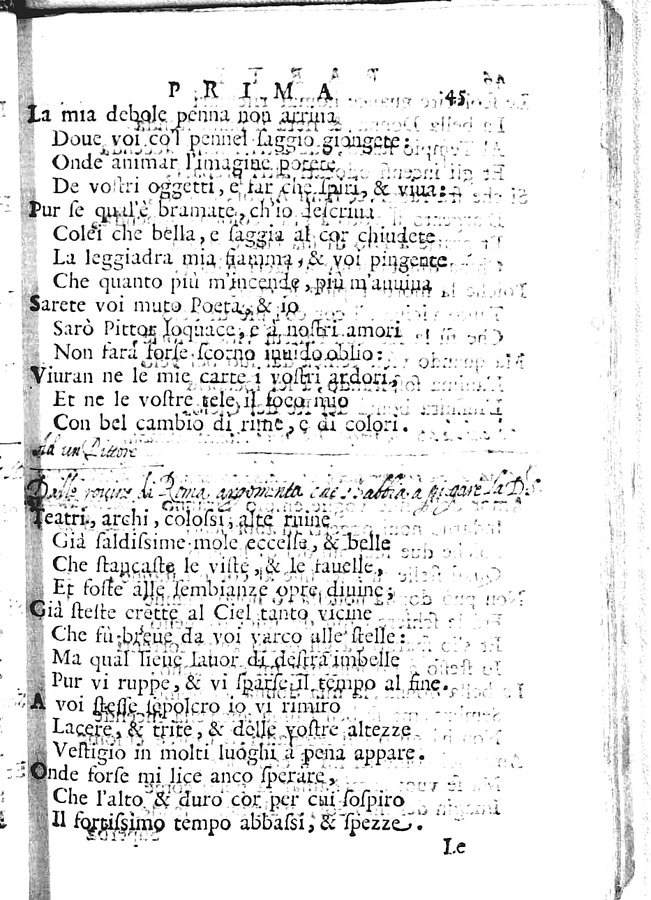 PRIMA 45
La mia debole penna non arriua
Doue voi co'l pennel saggio giongete:
Onde animar l'imagine potete
De vostri oggetti, e far che spiri, & viua:
Pur se qual'è bramate, ch'io descriua
Colei che bella, e saggia al cor chiudete
La leggiadra mia fiamma, & voi pingente
Che quanto più m'incende, più m'auuiua
Sarete voi muto Poeta, & io
Sarò Pittor loquace, e a nostri amori
Non farà forse scorno inuido oblio:
Viuran ne le mie carte i vostri ardori,
Et ne le vostre tele il foco mio
Con bel cambio di rime, e di colori.
Ad un Pittore
Dalle rouine di Roma argomenta che s'habbia à piegare la D.S.
Teatri, archi, colossi, alte ruine
Già saldissime mole eccelse, & belle
Che stancaste le viste, & le fauelle,
Et foste alle sembianze opre diuine;
Già steste erette al Ciel tanto vicine
Che fù breue da voi varco alle stelle:
Ma qual lieue lauor di destra imbelle
Pur vi ruppe, & vi sparse il tempo al fine.
A voi stesse sepolcro io vi rimiro
Lacere, & trite, & delle vostre altezze
Vestigio in molti luoghi à pena appare.
Onde forse mi lice anco sperare,
Che l'alto & duro cor per cui sospiro
Il fortissimo tempo abbassi, & spezze.
Le